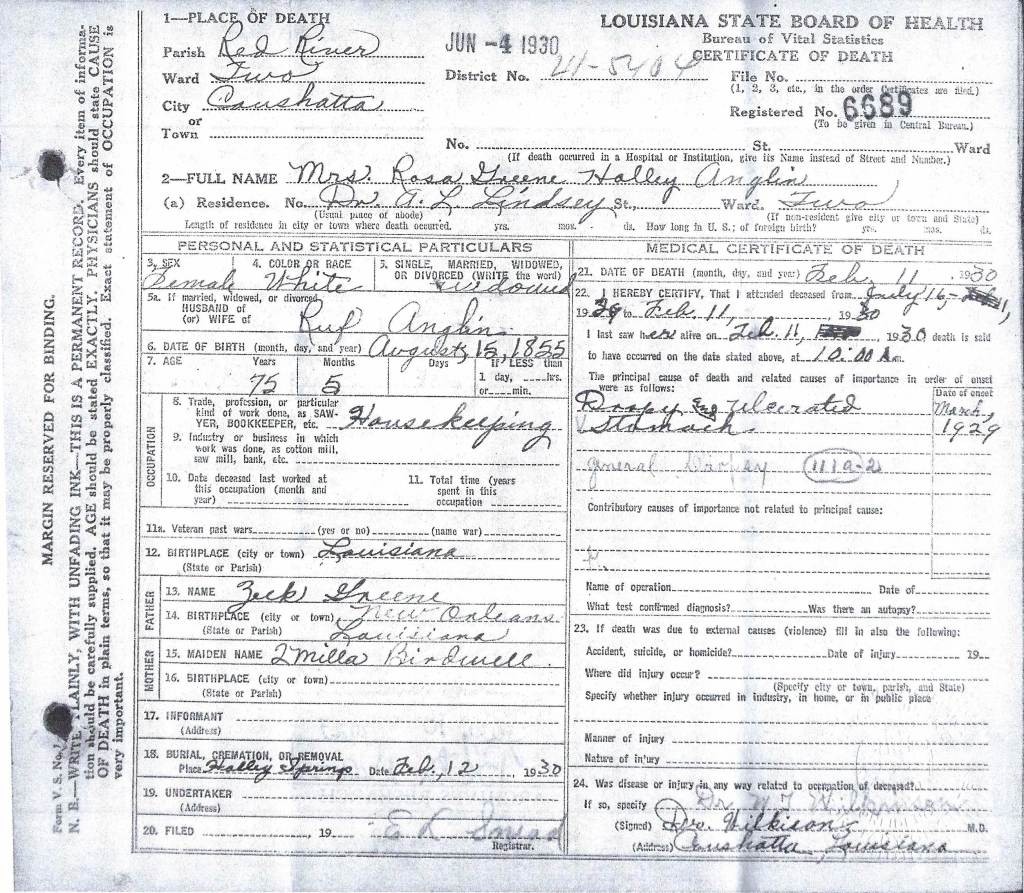 MARGIN RESERVED FOR BINDING.
N. B.—WRITE PLAINLY, WITH UNFADING INK—THIS IS A PERMANENT RECORD. Every item of informa-
tion should be carefully supplied. AGE should be stated EXACTLY. PHYSICIANS should state CAUSE
OF DEATH in plain terms, so that it may be properly classified. Exact statement of OCCUPATION is
very important.
Form V. S. No.
1—PLACE OF DEATH
Parish Red River
Ward Two
City Coushatta
or
Town
JUN -4 1930
LOUISIANA STATE BOARD OF HEALTH
Bureau of Vital Statistics
CERTIFICATE OF DEATH
District No. 41-5404
File No.
(1, 2, 3, etc., in the order Certificates are filed.)
Registered No. 6689
(To be given in Central Bureau.)
No. St. Ward
(If death occurred in a Hospital or Institution, give its Name instead of Street and Number.)
2—FULL NAME Mrs. Rosa Greene Holley Anglin
(a) Residence. No. Dr. A. L. Lindsey St., Ward. Two
(Usual place of abode) (If non-resident give city or town and State)
Length of residence in city or town where death occurred. yrs. mos. ds. How long in U. S.; of foreign birth? yrs. mos. ds.
PERSONAL AND STATISTICAL PARTICULARS
3. SEX 4. COLOR OR RACE 5. SINGLE, MARRIED, WIDOWED,
OR DIVORCED (WRITE the word)
Female White Widowed
5a. If married, widowed, or divorced
HUSBAND of
(or) WIFE of Ruf Anglin
6. DATE OF BIRTH (month, day, and year) August 15, 1855
7. AGE Years Months Days If LESS than
1 day, hrs.
75 5 or min.
OCCUPATION
8. Trade, profession, or particular
kind of work done, as SAW-
YER, BOOKKEEPER, etc. Housekeeping
9. Industry or business in which
work was done, as cotton mill,
saw mill, bank, etc.
10. Date deceased last worked at
this occupation (month and
year)
11. Total time (years
spent in this
occupation
11a. Veteran past wars (yes or no) (name war)
12. BIRTHPLACE (city or town) Louisiana
(State or Parish)
FATHER
13. NAME Zeek Greene
14. BIRTHPLACE (city or town) New Orleans
(State or Parish) Louisiana
MOTHER
15. MAIDEN NAME Milla Birdwell
16. BIRTHPLACE
17. INFORMANT
(Address)
18. BURIAL, CREMATION, OR REMOVAL
Place Holley Springs Date Feb. 12, 1930
19. UNDERTAKER
(Address)
20. FILED , 19 E L
Registrar.
MEDICAL CERTIFICATE OF DEATH
21. DATE OF DEATH (month, day, and year) Feb. 11, 1930
22. I HEREBY CERTIFY, That I attended deceased from July 16,
1929 to Feb. 11, 1930
I last saw her alive on Feb. 11, 1930 death is said
to have occurred on the date stated above, at 10:00 A.m.
The principal cause of death and related causes of importance in order of onset
were as follows:
Date of onset
Dropsy Ulcerated March
Stomach 1929
general Dropsy 111a-2
Contributory causes of importance not related to principal cause:
Name of operation Date of
What test confirmed diagnosis? Was there an autopsy?
23. If death was due to external causes (violence) fill in also the following:
Accident, suicide, or homicide? Date of injury 19
Where did injury occur?
(Specify city or town, parish, and State)
Specify whether injury occurred in industry, in home, or in public place
Manner of injury
Nature of injury
24. Was disease or injury in any way related to occupation of deceased?
If so, specify Dr. W T Wilkinson
(Signed) Drs. Wilkison M.D.
(Address) Coushatta, Louisiana